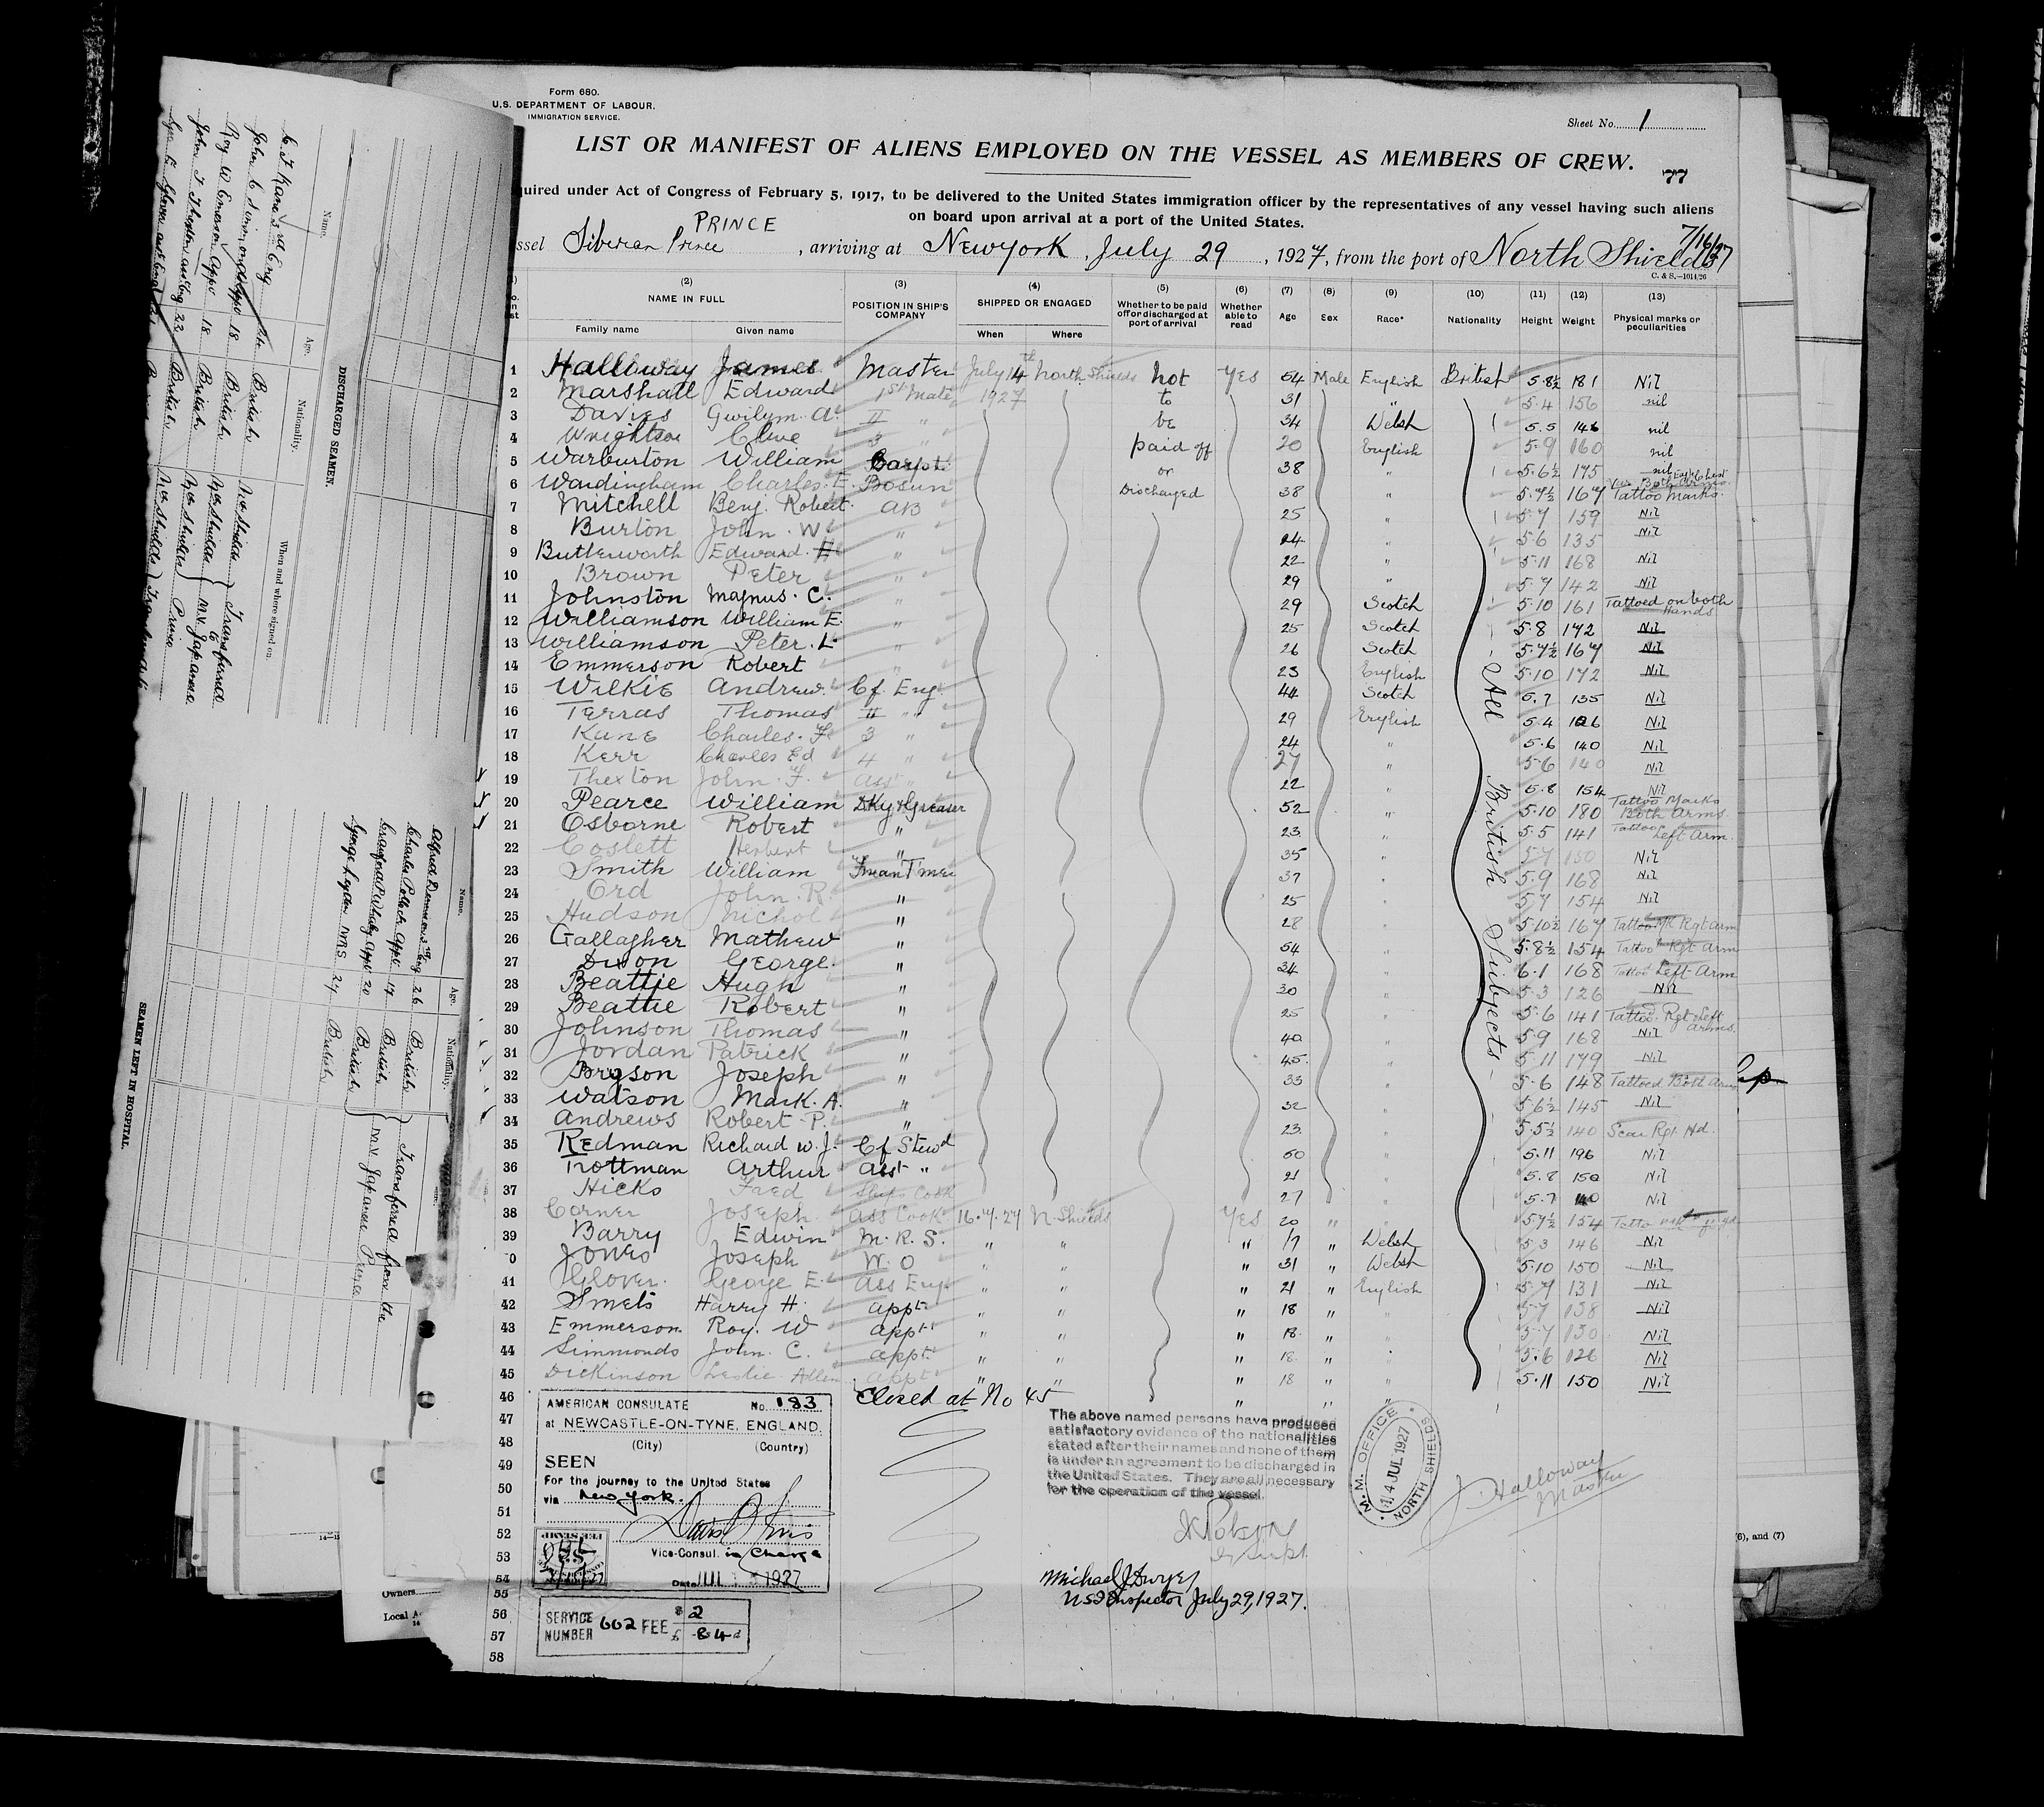 Form 680.
U.S. DEPARTMENT OF LABOUR.
IMMIGRATION SERVICE.
Sheet No. 1
LIST OR MANIFEST OF ALIENS EMPLOYED ON THE VESSEL AS MEMBERS OF CREW.
77
quired under Act of Congress of February 5, 1917, to be delivered to the United States immigration officer by the representatives of any vessel having such aliens
on board upon arrival at a port of the United States.
PRINCE
7/16/27
ssel Siberian Prince, arriving at New york, July 29, 1927, from the port of North Shields
C. & S.—1014/26
(2) (3) (4) (5) (6) (7) (8) (9) (10) (11) (12) (13)
NAME IN FULL POSITION IN SHIP'S COMPANY SHIPPED OR ENGAGED Whether to be paid off or discharged at port of arrival Whether able to read Age Sex Race* Nationality Height Weight Physical marks or peculiarities
Family name Given name When Where
1 Halloway James Master July 14th North Shields not Yes 54 Male English British 5.8½ 181 Nil
2 Marshall Edward 1st Mate 1927 to 31 " 5.4 156 nil
3 Davies Gwilym. A. II " be 34 Welsh 5.5 146 nil
4 Wrightson Clive 3 " paid off 20 English 5.9 160 nil
5 Warburton William Carpt. or 38 " 5.6½ 175 nil
6 Wardingham Charles. E. Bosun Discharged 38 " 5.7½ 167 Tattoo Marks.
7 Mitchell Benj. Robert. AB 25 " 5.7 159 Nil
8 Burton John. W. " 24 " 5.6 135 Nil
9 Butterworth Edward. H " 22 " 5.11 168 Nil
10 Brown Peter " 29 " 5.7 142 Nil
11 Johnston Magnus. C. " 29 Scotch 5.10 161 Tattoed on both Hands
12 Williamson William E. " 25 Scotch 5.8 172 Nil
13 Williamson Peter. L " 26 Scotch 5.7½ 167 Nil
14 Emmerson Robert " 23 English 5.10 172 Nil
15 Wilkie Andrew. Cf. Eng. 44 Scotch 5.7 135 Nil
16 Terras Thomas II " 29 English 5.4 126 Nil
17 Kane Charles. F. 3 " 24 " 5.6 140 Nil
18 Kerr Charles Ed 4 " 27 " 5.6 140 Nil
19 Thexton John. F. Asst " 22 " 5.8 154 Nil
20 Pearce William DKy & Greaser 52 " 5.10 180 Tattoo Marks Both Arms.
21 Osborne Robert " 23 " 5.5 141 Tattoo Left Arm.
22 Coslett Herbert " 35 " 5.7 150 Nil
23 Smith William F'man T'mer 37 " 5.9 168 Nil
24 Ord John. R. " 25 " 5.7 154 Nil
25 Hudson Nichol " 28 " 5.10½ 167 Tattoo Mk Rgt arm
26 Gallagher Mathew " 54 " 5.8½ 154 Tattoo Rgt Arm
27 Dixon George. " 34 " 6.1 168 Tattoo Left Arm
28 Beattie Hugh " 30 " 5.3 126 Nil
29 Beattie Robert " 25 " 5.6 141 Tattoed Rgt Left Arms.
30 Johnson Thomas " 40 " 5.9 168 Nil
31 Jordan Patrick " 45. " 5.11 179 Nil
32 Bryson Joseph " 33 " 5.6 148 Tattoed Both Arms
33 Watson Mark. A. " 32 " 5.6½ 145 Nil
34 Andrews Robert. P. " 23. " 5.5½ 140 Scar Rgt. Hd.
35 Redman Richard W. J. Cf Stewd 50 " 5.11 196 Nil
36 Trottman Arthur Asst " 21 " 5.8 150 Nil
37 Hicks Fred Ships Cook 27 " 5.7 140 Nil
38 Corner Joseph Ass Cook 16.7.27 N. Shields Yes 20 " " 5.7½ 154
39 Barry Edwin M. R. S. " " " 17 " Welsh 5.3 146 Nil
0 Jones Joseph W. O " " " 31 " Welsh 5.10 150 Nil
41 Glover. George E. Ass Eng. " " " 21 " English 5.7 131 Nil
42 Smets Harry H. Appt " " " 18 " " 5.7 138 Nil
43 Emmerson. Roy. W Appt " " " 18. " " 5.7 130 Nil
44 Simmonds John. C. Appt. " " " 18. " " 5.6 126 Nil
45 Dickinson Leslie Allen Appt " " " 18 " " 5.11 150 Nil
All British Subjects
46 Closed at No 45
47
48
49
50
51
52
53
54
55
56
57
58
AMERICAN CONSULATE No. 183
at NEWCASTLE-ON-TYNE, ENGLAND.
(City) (Country)
SEEN
For the journey to the United States
via New York.
Vice-Consul. in Charge
Date JUL 15 1927
SERVICE NUMBER 602 FEE $ 2 £ -8-4d
The above named persons have produced
satisfactory evidence of the nationalities
stated after their names and none of them
is under an agreement to be discharged in
the United States. They are all necessary
for the operation of the vessel.
M.M. OFFICE
14 JUL 1927
NORTH SHIELDS
J. Halloway
Master
Michael J Dwyer
US Inspector July 29, 1927.
Owners
Local A
(6), and (7)
DISCHARGED SEAMEN.
Name. Age. Nationality. When and where signed on.
C F Kane 3rd Eng 24 British Nth Shields
John C Simmonds Appt 18 British Nth Shields
Roy W Emerson Appt 18 British Nth Shields
John F Thexton ass Eng 22 British Nth Shields
Transferred to M.V. Japanese Prince
SEAMEN LEFT IN HOSPITAL.
Name. Age. Nationality.
Alfred Dennison 3rd Eng 26 British
Charles Pollock Appt 17 British
Crawford P Whaly Appt 20 British
George Leyton MRS 24 British
Transferred from the M.V. Japanese Prince